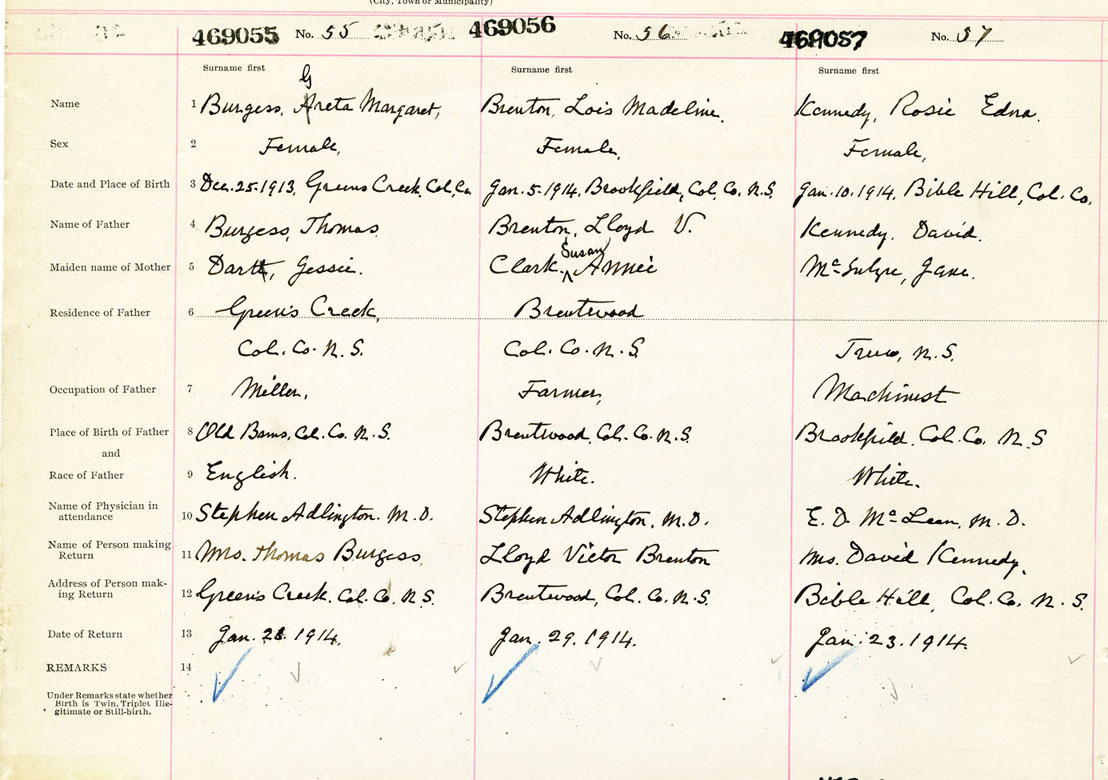 (City, Town or Municipality)
469055 No. 55 469056 No. 56 469057 No. 57
Surname first Surname first Surname first
G
Name 1 Burgess, Areta Margaret, Brenton, Lois Madeline. Kennedy, Rosie Edna.
Sex 2 Female, Female, Female,
Date and Place of Birth 3 Dec. 25. 1913, Greens Creek, Col. Co. Jan. 5. 1914, Brookfield, Col. Co. N.S. Jan. 10. 1914, Bible Hill, Col. Co.
Name of Father 4 Burgess, Thomas Brenton, Lloyd V. Kennedy, David.
Susan
Maiden name of Mother 5 Dart, Jessie. Clark, Annie McIntyre, Jane.
Residence of Father 6 Green's Creek, Brentwood
Col. Co. N.S. Col. Co. N.S. Truro, N.S.
Occupation of Father 7 Miller, Farmer, Machinist
Place of Birth of Father 8 Old Barns, Col. Co. N.S. Brentwood, Col. Co. N.S. Brookfield, Col. Co. N.S
and
Race of Father 9 English. White. White.
Name of Physician in
attendance 10 Stephen Adlington. M.D. Stephen Adlington, M.D. E. D. McLean, M.D.
Name of Person making
Return 11 Mrs. Thomas Burgess, Lloyd Victor Brenton Mrs. David Kennedy.
Address of Person mak-
ing Return 12 Green's Creek. Col. Co. N.S. Brentwood, Col. Co. N.S. Bible Hill, Col. Co. N.S.
Date of Return 13 Jan. 28. 1914. Jan. 29. 1914. Jan. 23. 1914.
REMARKS 14
Under Remarks state whether
Birth is Twin, Triplet, Ille-
gitimate or Still-birth.